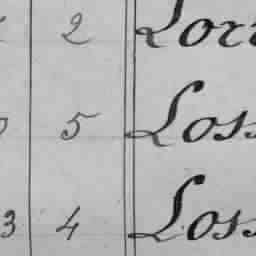 2 Lor
5 Loss
3 4 Loss